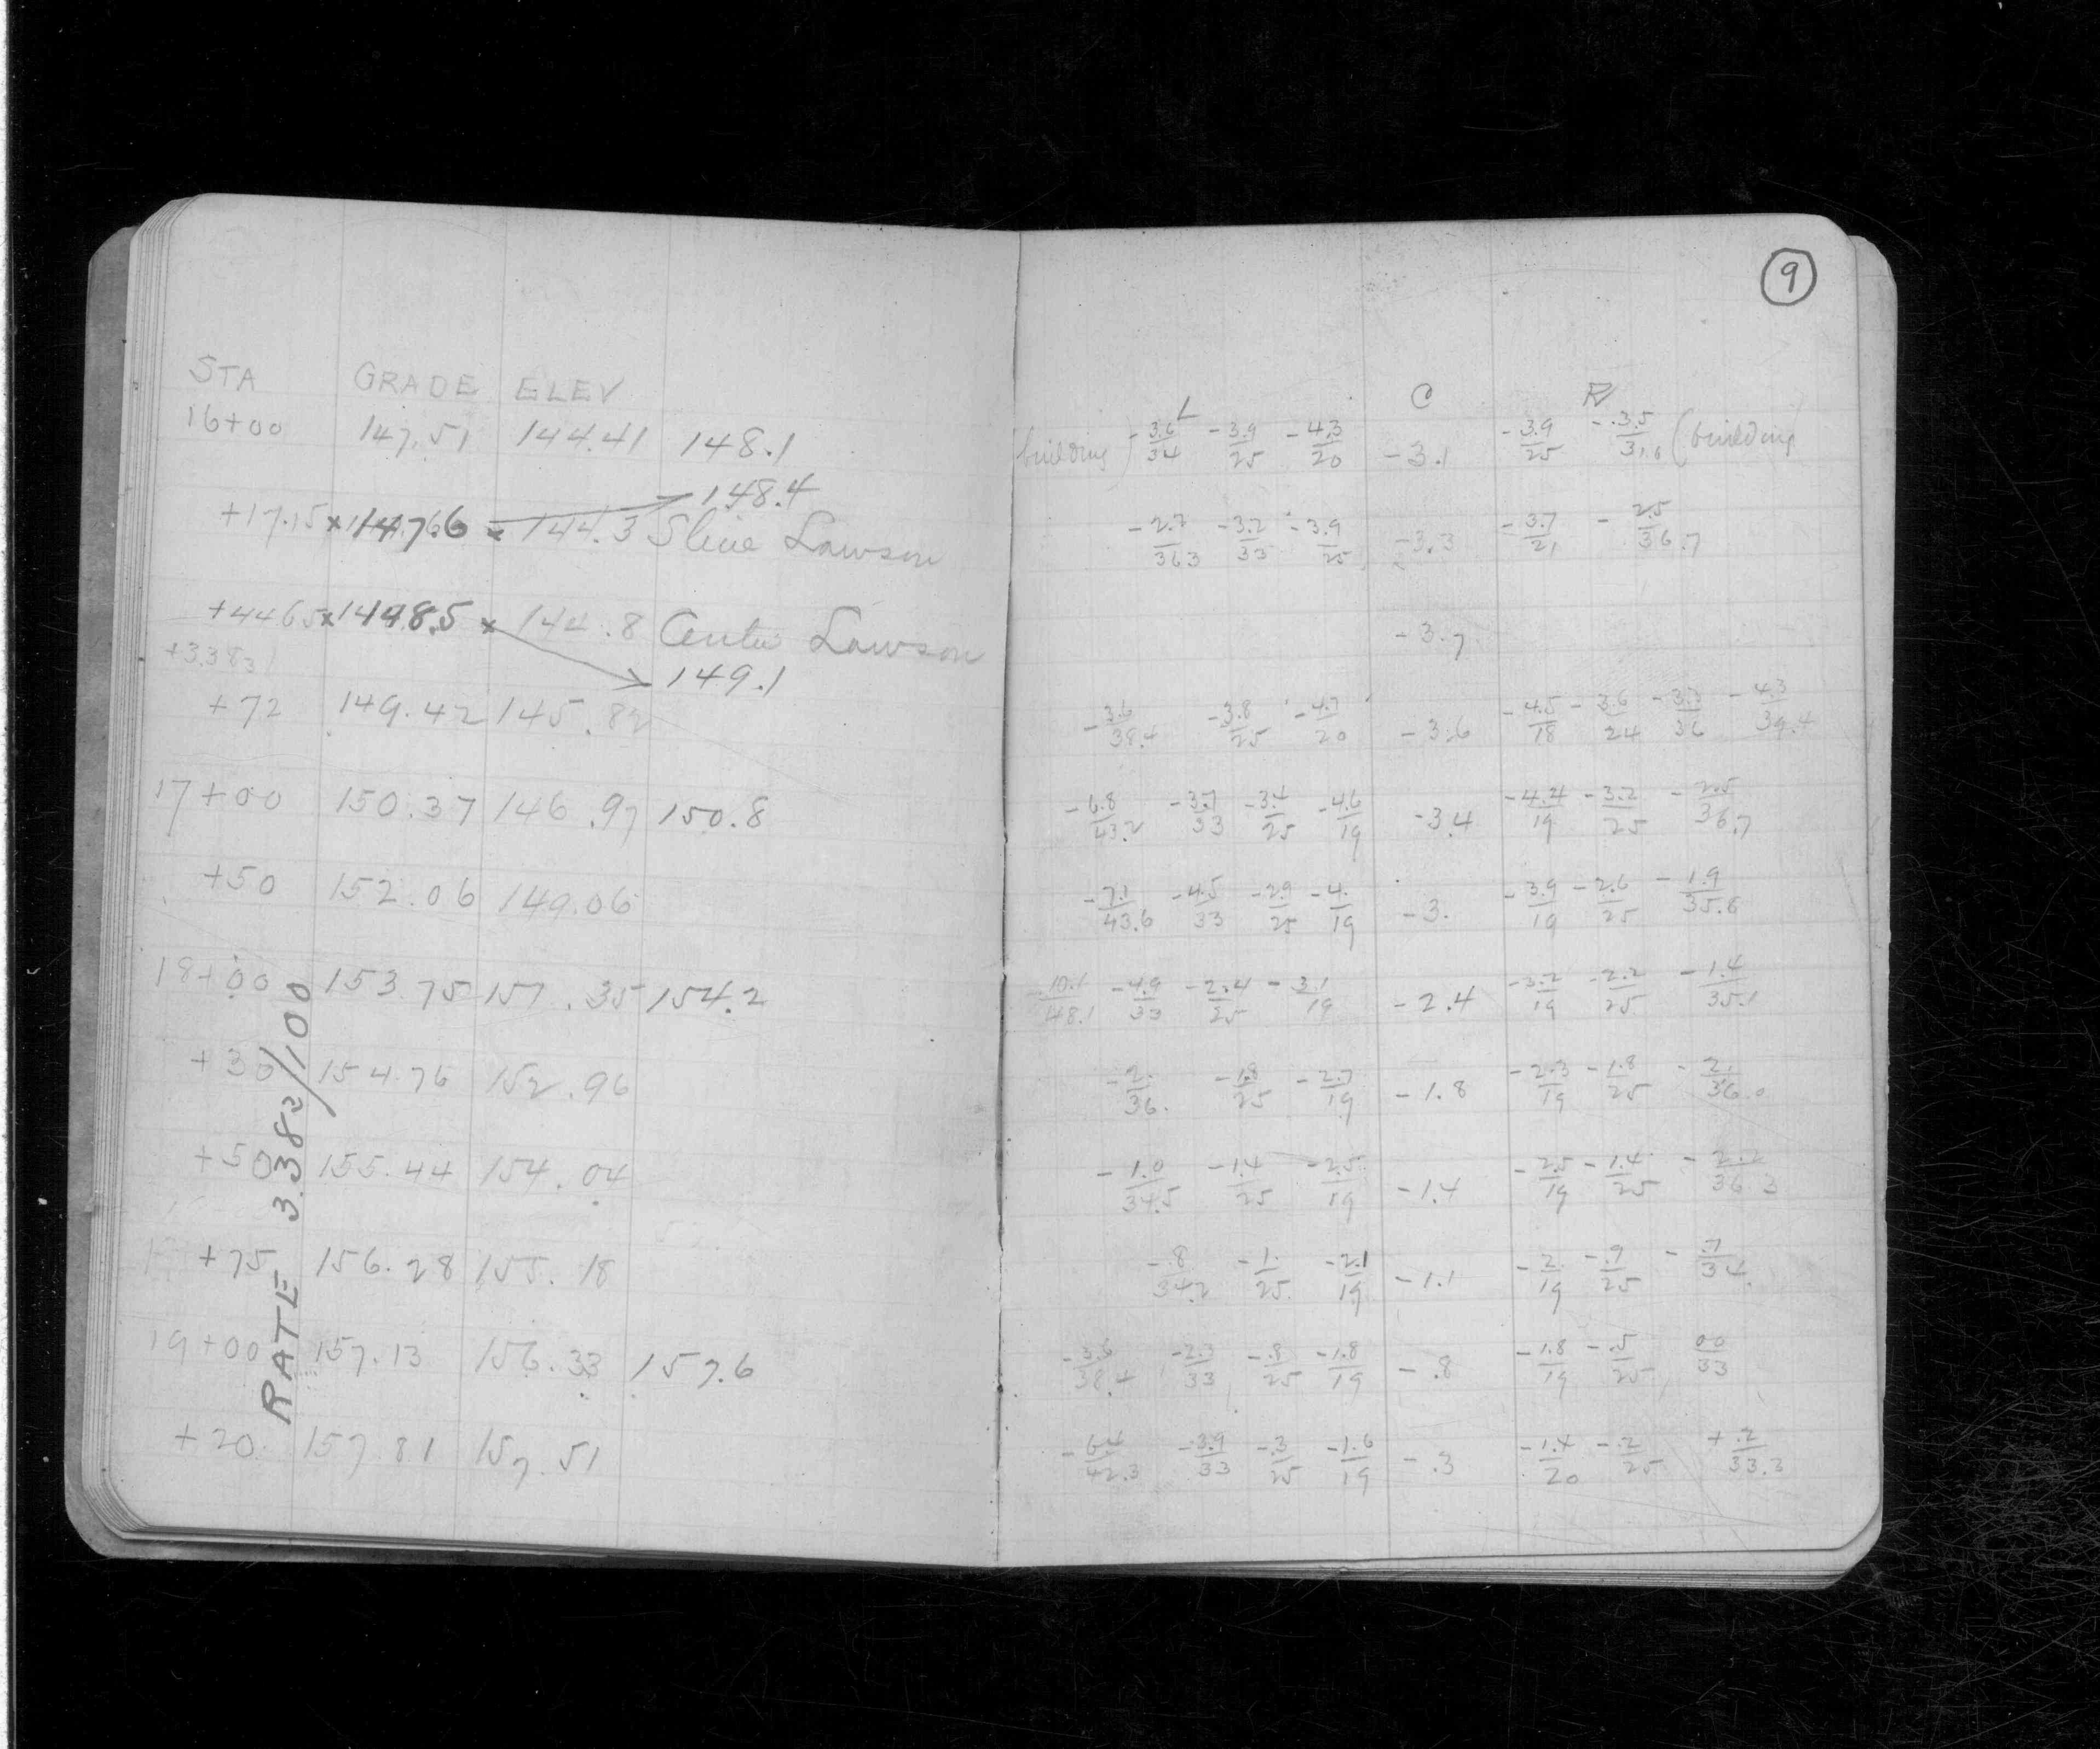 9
STA GRADE ELEV
L C R
16+00 147.51 144.41 148.1
building) -3.6/34 -3.9/25 -4.3/20 -3.1 -3.9/25 -3.5/31.6 (building
148.4
+17.15 x 147.66 x 144.3 Sline Lawson
-2.7/36.3 -3.2/33 -3.9/25 -3.3 -3.7/21 -2.5/36.7
+44.65 x 148.5 x 144.8 Center Lawson
-3.7
149.1
+72 149.42 145.82
-3.6/38.4 -3.8/25 -4.7/20 -3.6 -4.5/18 -3.6/24 -3.3/36 -4.3/39.4
17+00 150.37 146.97 150.8
-6.8/43.2 -3.7/33 -3.4/25 -4.6/19 -3.4 -4.4/19 -3.2/25 -2.5/36.7
+50 152.06 149.06
-7.1/43.6 -4.5/33 -2.9/25 -4./19 -3. -3.9/19 -2.6/25 -1.9/35.8
18+00 153.75 151.35 154.2
-10.1/48.1 -4.9/33 -2.4/25 -3.1/19 -2.4 -3.2/19 -2.2/25 -1.4/35.1
+30 154.76 152.96
-2./36. -1.8/25 -2.7/19 -1.8 -2.3/19 -1.8/25 -2./36.0
+50 155.44 154.04
-1.0/34.5 -1.4/25 -2.5/19 -1.4 -2.5/19 -1.4/25 -2.2/36.3
+75 156.28 155.18
-.8/34.2 -1./25 -2.1/19 -1.1 -2/19 -.9/25 -.7/34.
19+00 157.13 156.33 157.6
-3.6/38.4 -2.3/33 -.8/25 -1.8/19 -.8 -1.8/19 -.5/25 00/33
+20 157.81 157.51
-6.4/42.3 -3.9/33 -.3/25 -1.6/19 -.3 -1.4/20 -.2/25 +.2/33.3
RATE 3.382/100